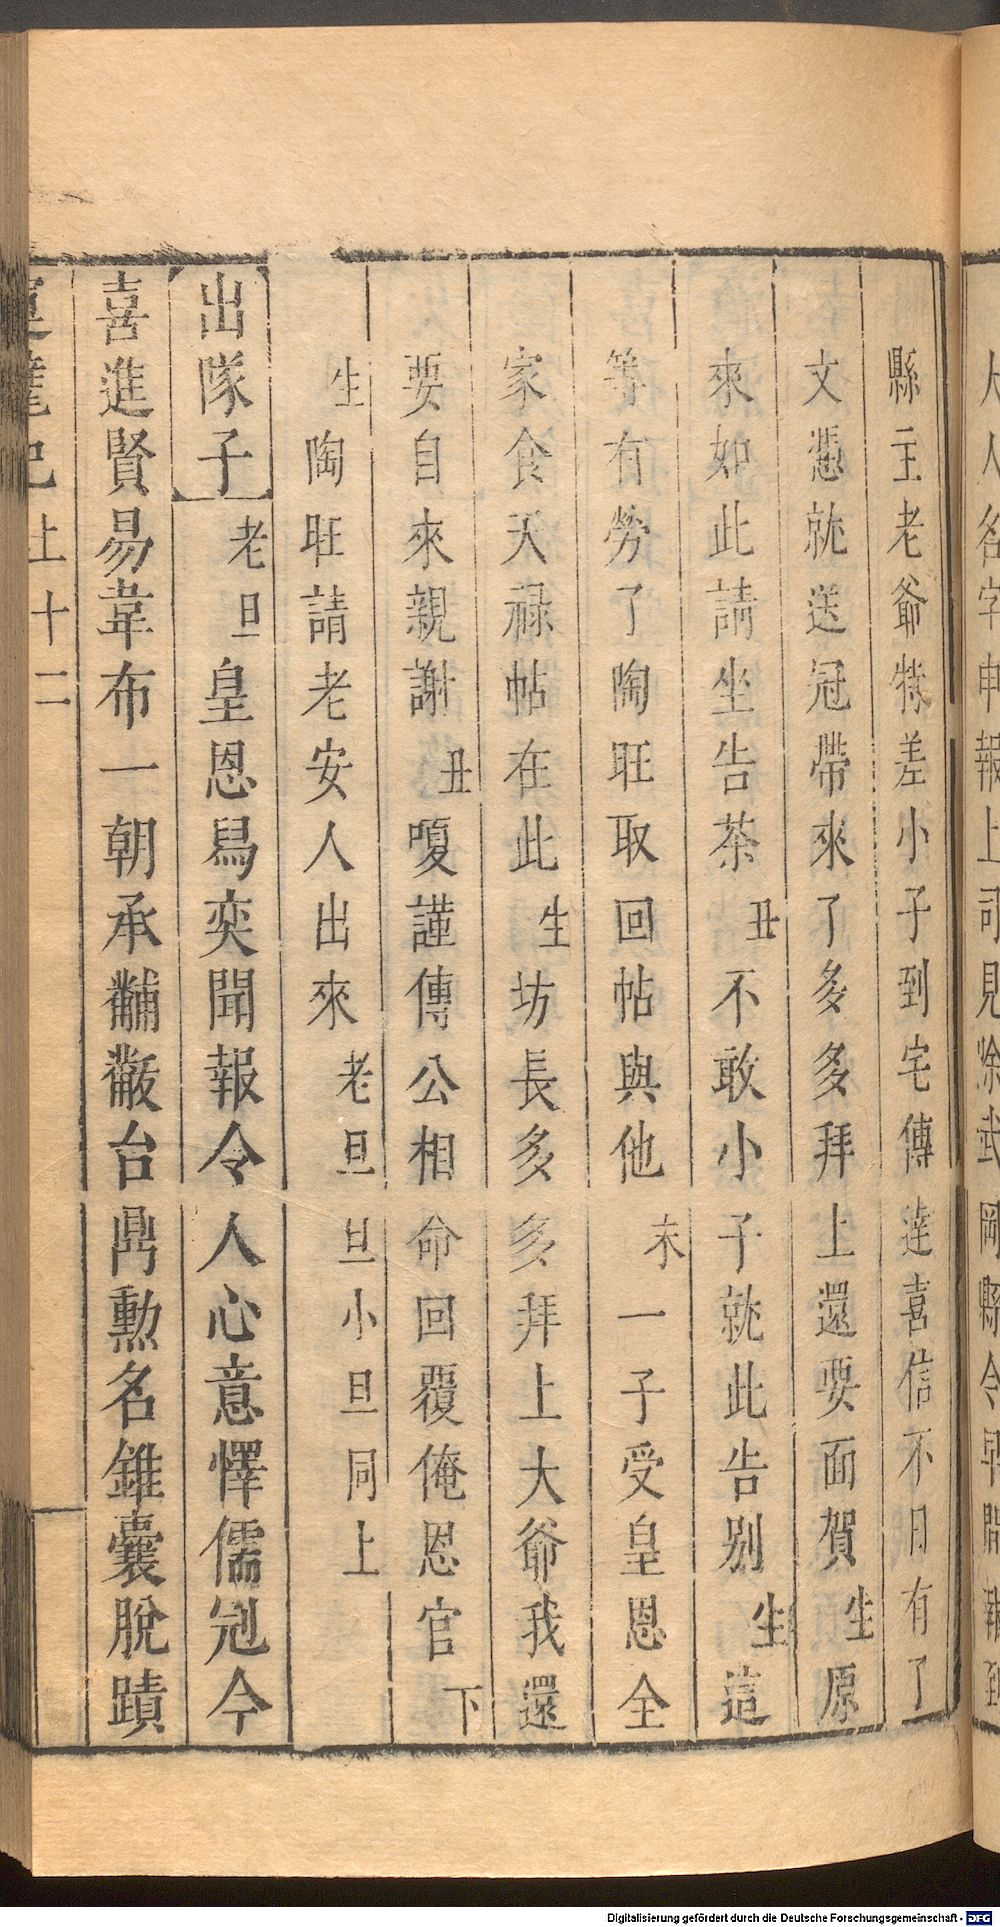 人人名字申報上司見除武岡縣令早間報到
縣主老爺特差小子到宅傳達喜信不日有了
文憑就送冠帶來了多多拜上還要面賀生原
來如此請坐告茶丑不敢小子就此告別生這
等有勞了陶旺取回帖與他末一子受皇恩全
家食天祿帖在此生坊長多多拜上大爺我還
要自來親謝丑嗄謹傳公相命回覆俺恩官下
生陶旺請老安人出來老旦旦小旦同上
出隊子老旦皇恩舃奕聞報令人心意懌儒冠今
喜進賢易韋布一朝承黼黻台鼎勳名錐囊脫蹟
記上十二
Digitalisierung gefördert durch die Deutsche Forschungsgemeinschaft - DFG